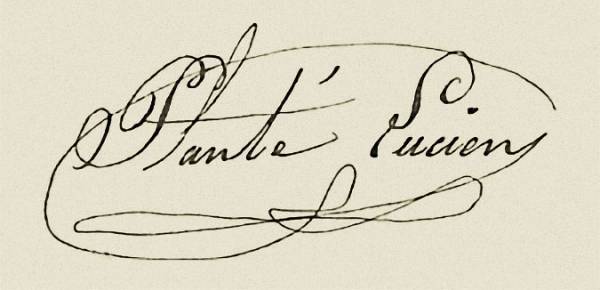 Planté Lucien